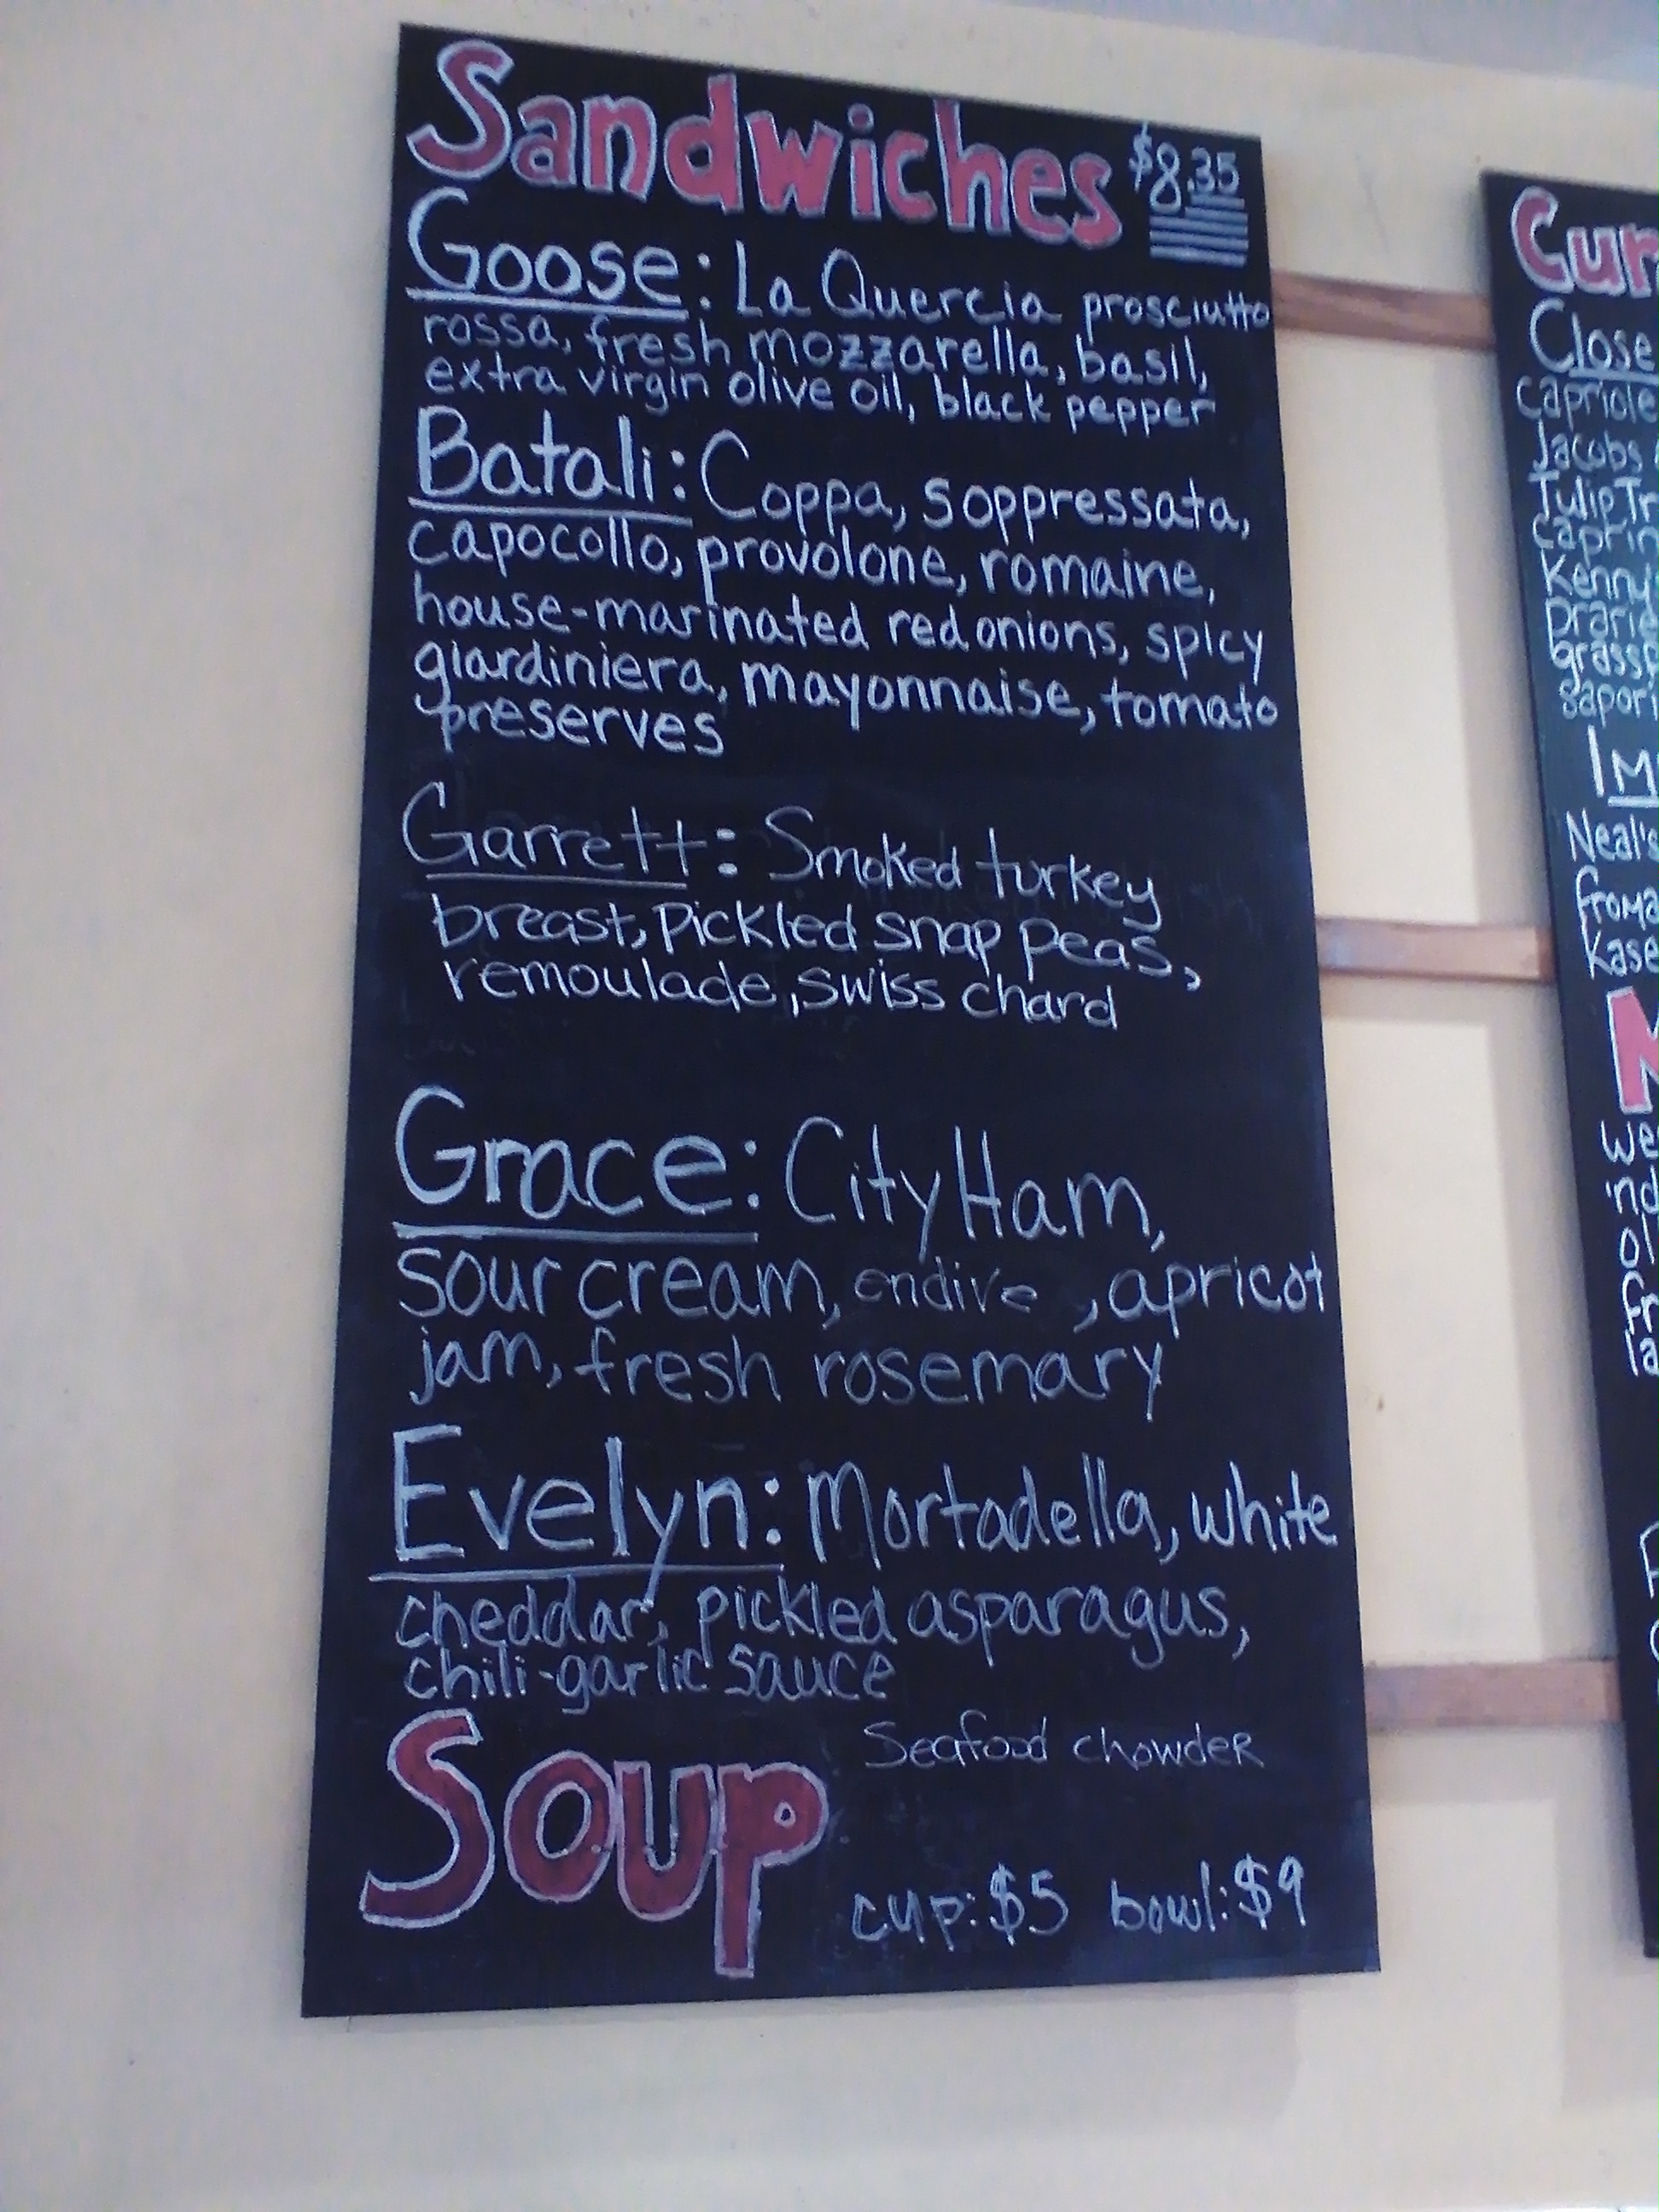 Sandwiches $8.35
Goose: La Quercia prosciutto
rossa, fresh mozzarella, basil,
extra virgin olive oil, black pepper
Batali: Coppa, soppressata,
capocollo, provolone, romaine,
house-marinated red onions, spicy
giardiniera, mayonnaise, tomato
preserves
Garrett: Smoked turkey
breast, Pickled snap peas,
remoulade, swiss chard
Grace: City Ham,
sour cream, endive, apricot
jam, fresh rosemary
Evelyn: Mortadella, white
cheddar, pickled asparagus,
chili-garlic sauce
Soup Seafood chowder
cup: $5 bowl: $9
Cur
Close
Capriole
Jacobs
TulipTr
Caprin
Kenny
Prarie
grassf
sapori
Im
Neal's
froma
Kase
M
we
ind
ol
fr
la